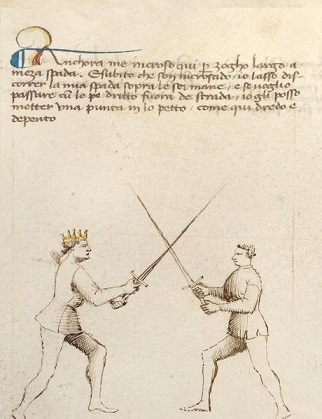 Anchora me incroso qui per zogho largo a
meza spada. E subito che son incrosado io lasso dis-
correr la mia spada sopra le soi mane, e se voglio
passare cum lo pe dritto fuora de strada, io gli posso
metter una punta in lo petto, come qui dredo è
depento